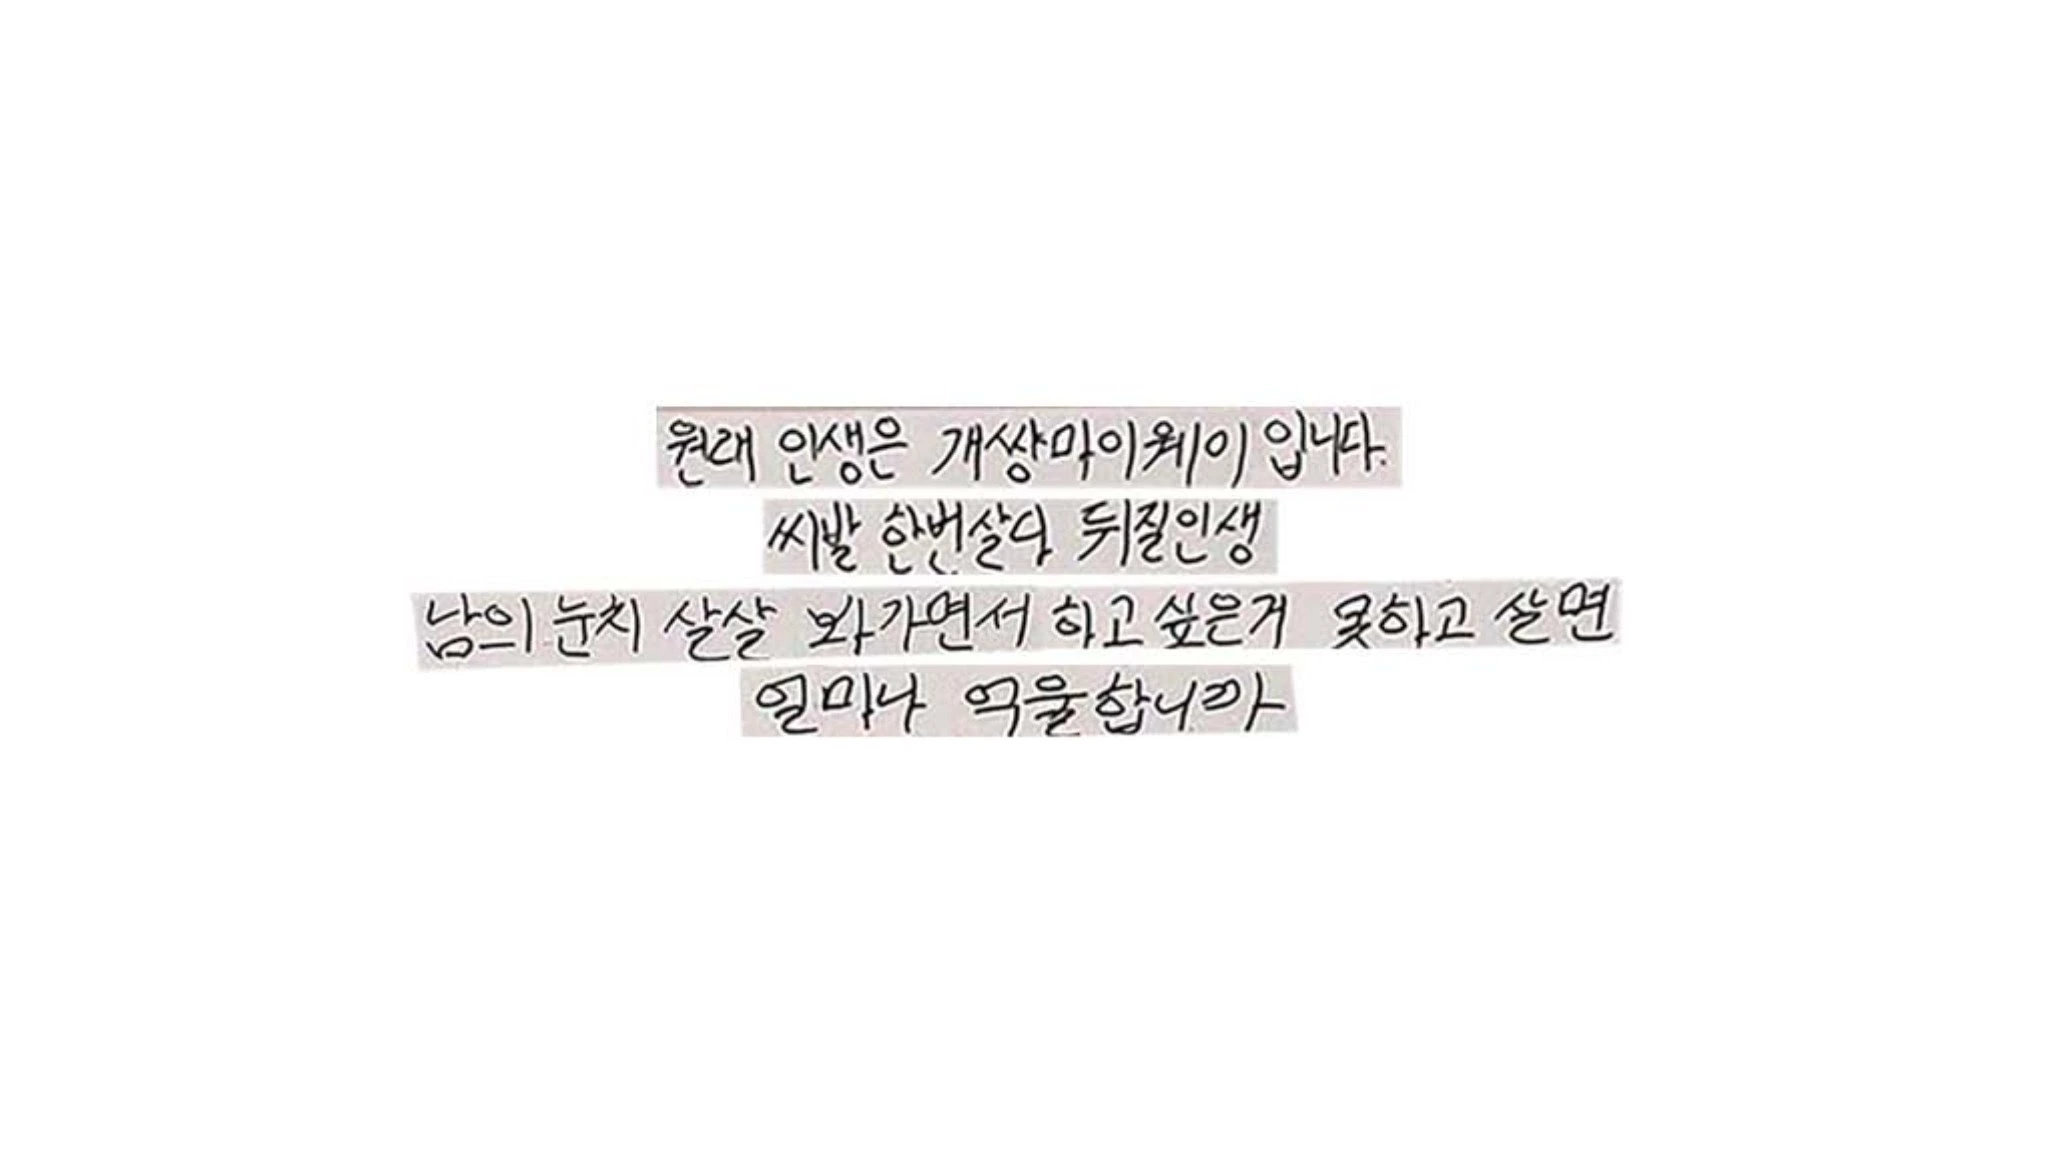 원래 인생은 개썅마이웨이 입니다.
씨발 한번살다 뒤질인생
남의 눈치 살살 봐가면서 하고싶은거 못하고 살면
얼마나 억울합니까